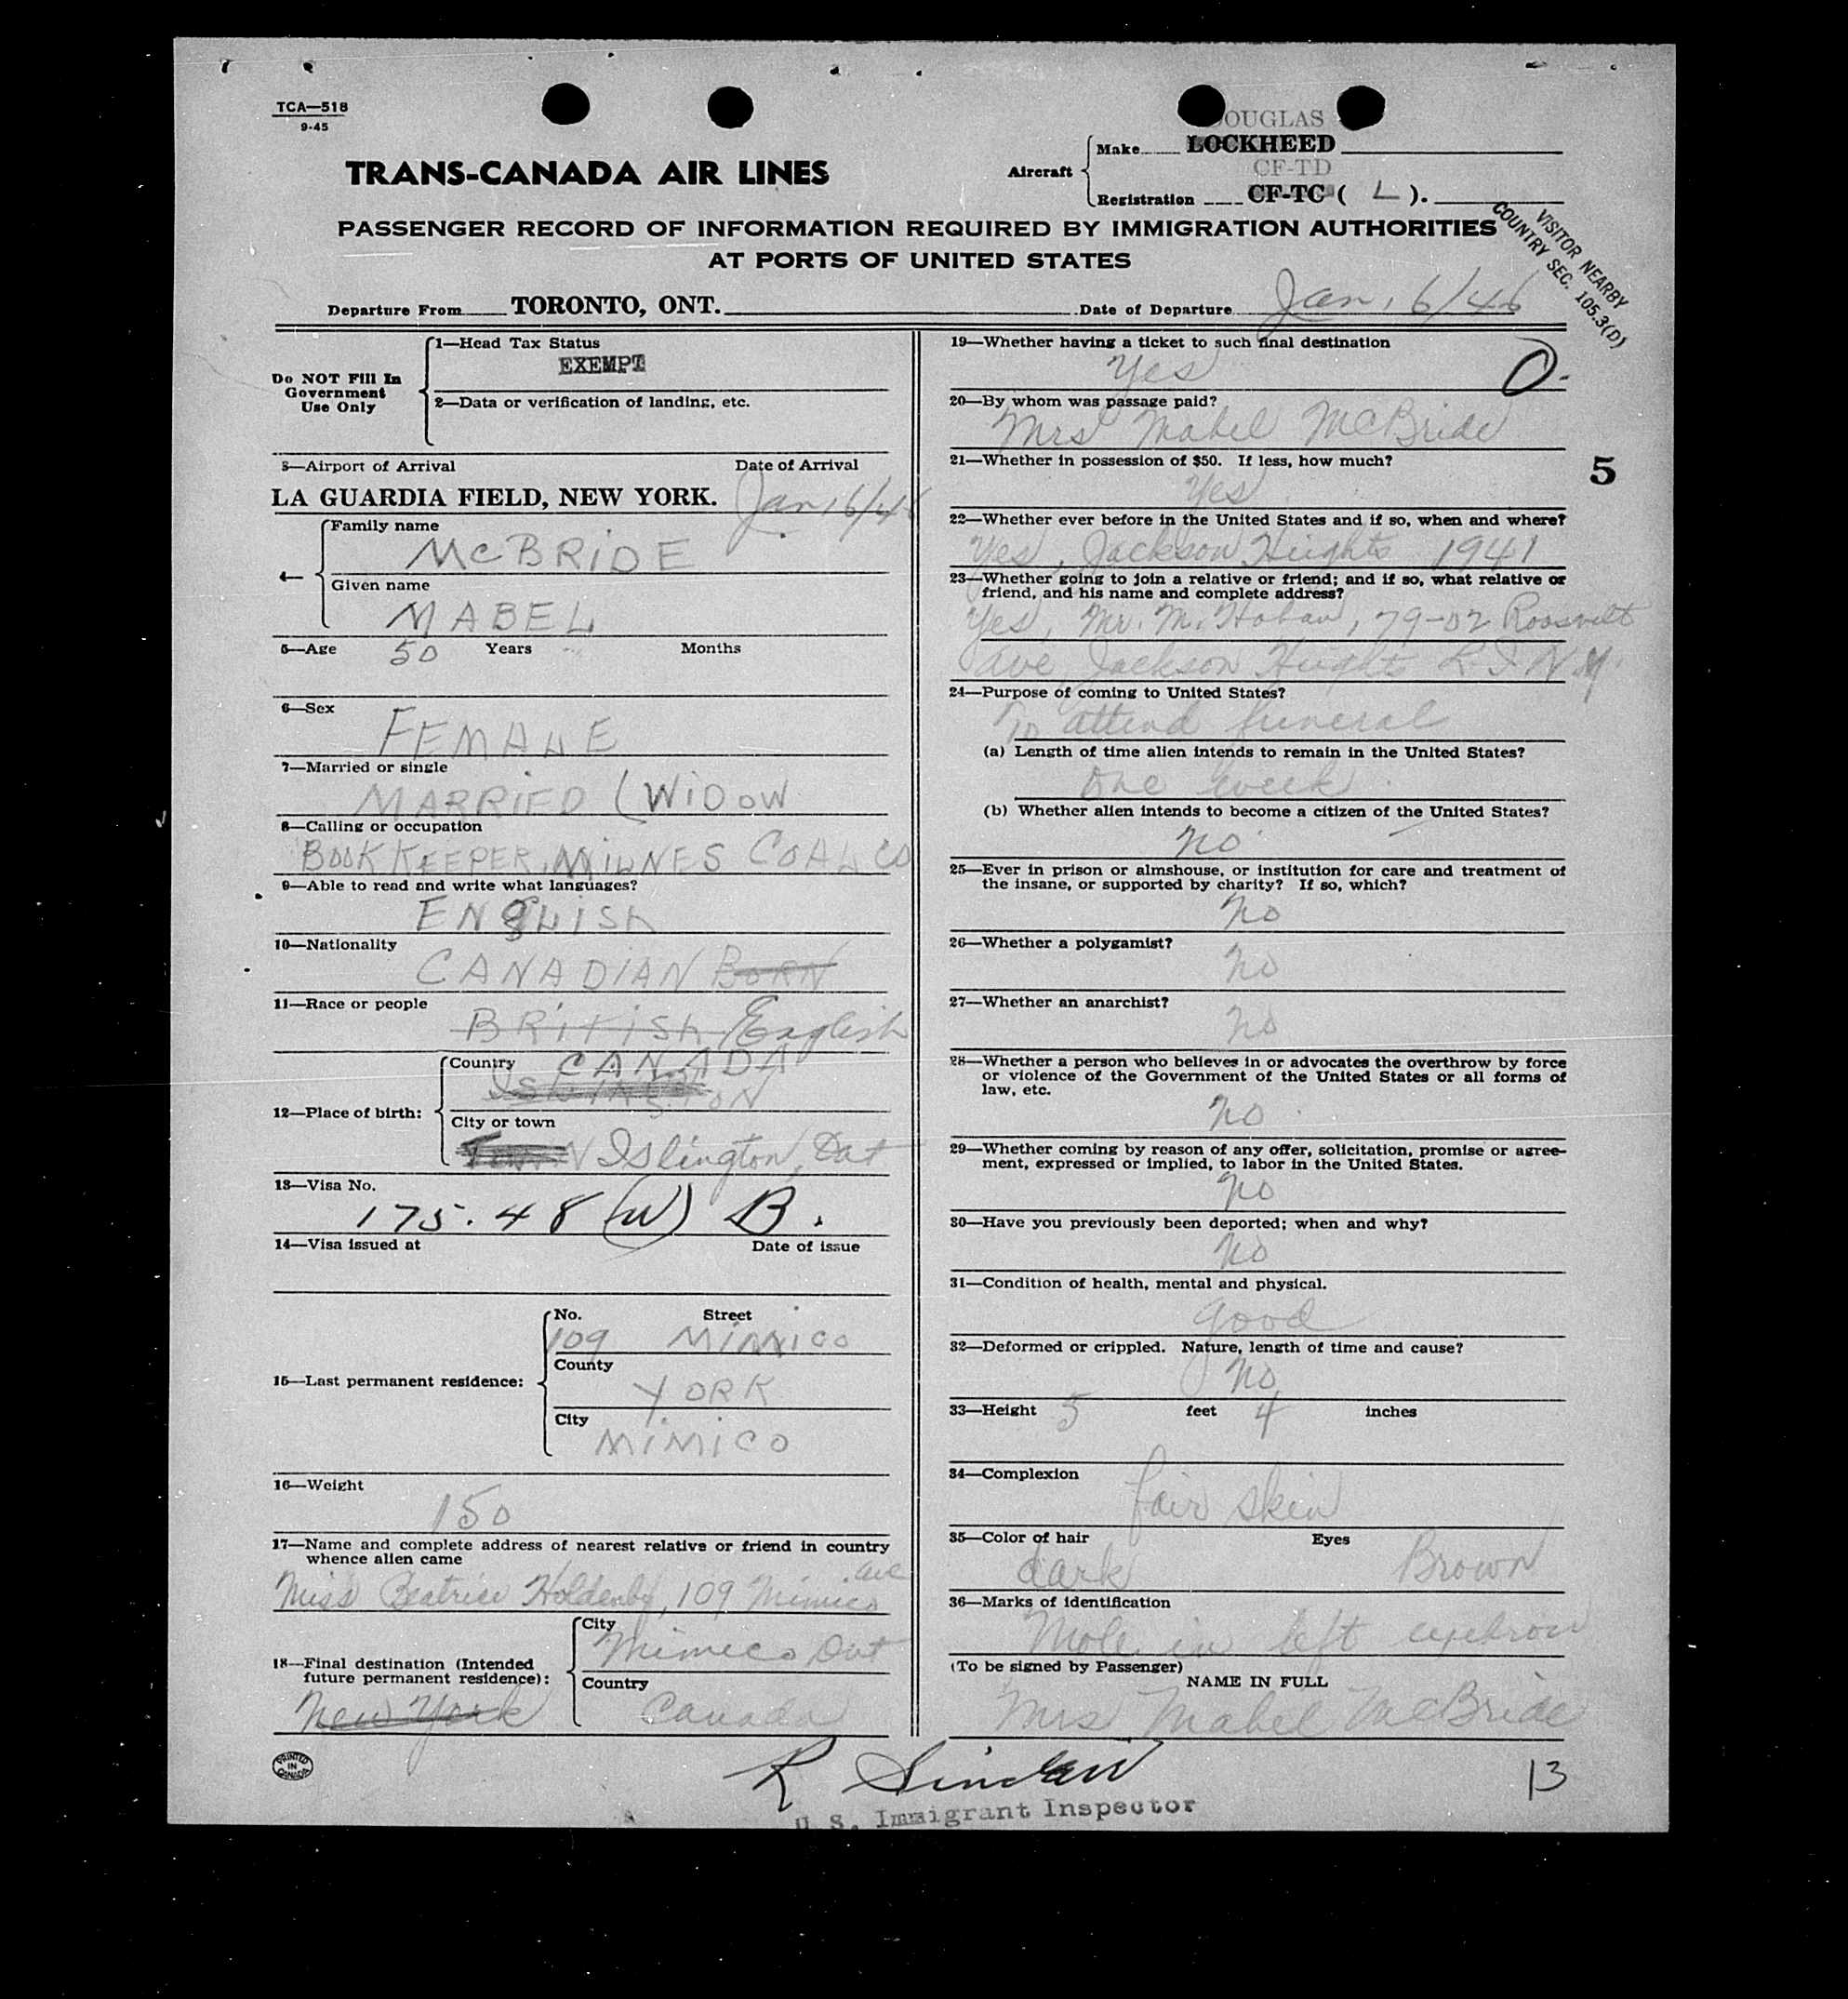 TCA—518
9-45
OUGLAS
TRANS-CANADA AIR LINES
Aircraft
Make LOCKHEED
CF-TD
Registration CF-TC ( L ).
PASSENGER RECORD OF INFORMATION REQUIRED BY IMMIGRATION AUTHORITIES
AT PORTS OF UNITED STATES
VISITOR NEARBY
COUNTRY SEC. 105.3(D)
Departure From TORONTO, ONT. Date of Departure Jan. 6/46
Do NOT Fill In
Government
Use Only
1—Head Tax Status
EXEMPT
2—Data or verification of landing, etc.
3—Airport of Arrival Date of Arrival
LA GUARDIA FIELD, NEW YORK. Jan 6/46
4— Family name
McBRIDE
Given name
MABEL
5—Age 50 Years Months
6—Sex
FEMALE
7—Married or single
MARRIED (WIDOW
8—Calling or occupation
BOOKKEEPER, MILNES COAL CO
9—Able to read and write what languages?
ENGLISH
10—Nationality
CANADIAN BORN
11—Race or people
BRITISH English
12—Place of birth:
Country CANADA
ISLINGTON
City or town
Islington, Ont
13—Visa No.
175.48 (W) B.
14—Visa issued at Date of issue
15—Last permanent residence:
No. Street
109 MIMICO
County
YORK
City
MIMICO
16—Weight
150
17—Name and complete address of nearest relative or friend in country
whence alien came
Miss Beatrice Holdenby, 109 Mimico ave
18—Final destination (Intended
future permanent residence):
New York
City
Mimico Ont
Country
Canada
19—Whether having a ticket to such final destination
Yes
O.
20—By whom was passage paid?
Mrs Mabel McBride
21—Whether in possession of $50. If less, how much?
Yes
5
22—Whether ever before in the United States and if so, when and where?
Yes, Jackson Heights 1941
23—Whether going to join a relative or friend; and if so, what relative or
friend, and his name and complete address?
Yes, Mr. M. Hoban, 79-02 Roosvelt
Ave Jackson Heights L.I N.Y.
24—Purpose of coming to United States?
To attend funeral
(a) Length of time alien intends to remain in the United States?
One week
(b) Whether alien intends to become a citizen of the United States?
No
25—Ever in prison or almshouse, or institution for care and treatment of
the insane, or supported by charity? If so, which?
No
26—Whether a polygamist?
No
27—Whether an anarchist?
No
28—Whether a person who believes in or advocates the overthrow by force
or violence of the Government of the United States or all forms of
law, etc.
No
29—Whether coming by reason of any offer, solicitation, promise or agree-
ment, expressed or implied, to labor in the United States.
No
30—Have you previously been deported; when and why?
No
31—Condition of health, mental and physical.
Good
32—Deformed or crippled. Nature, length of time and cause?
No
33—Height 5 feet 4 inches
34—Complexion
fair skin
35—Color of hair Eyes
dark Brown
36—Marks of identification
Mole in left eyebrow
(To be signed by Passenger)
NAME IN FULL
Mrs Mabel McBride
PRINTED IN CANADA
R Sinclair
13
U. S. Immigrant Inspector